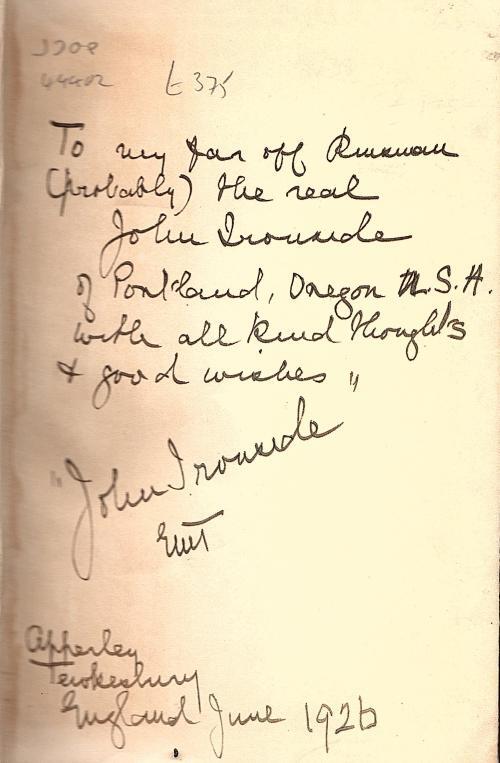 £375
To my far off Kinsman
(probably) the real
John Ironside
of Portland, Oregon U.S.A.
with all kind thoughts
& good wishes "
"John Ironside
Apperley
Tewkesbury
England June 1926